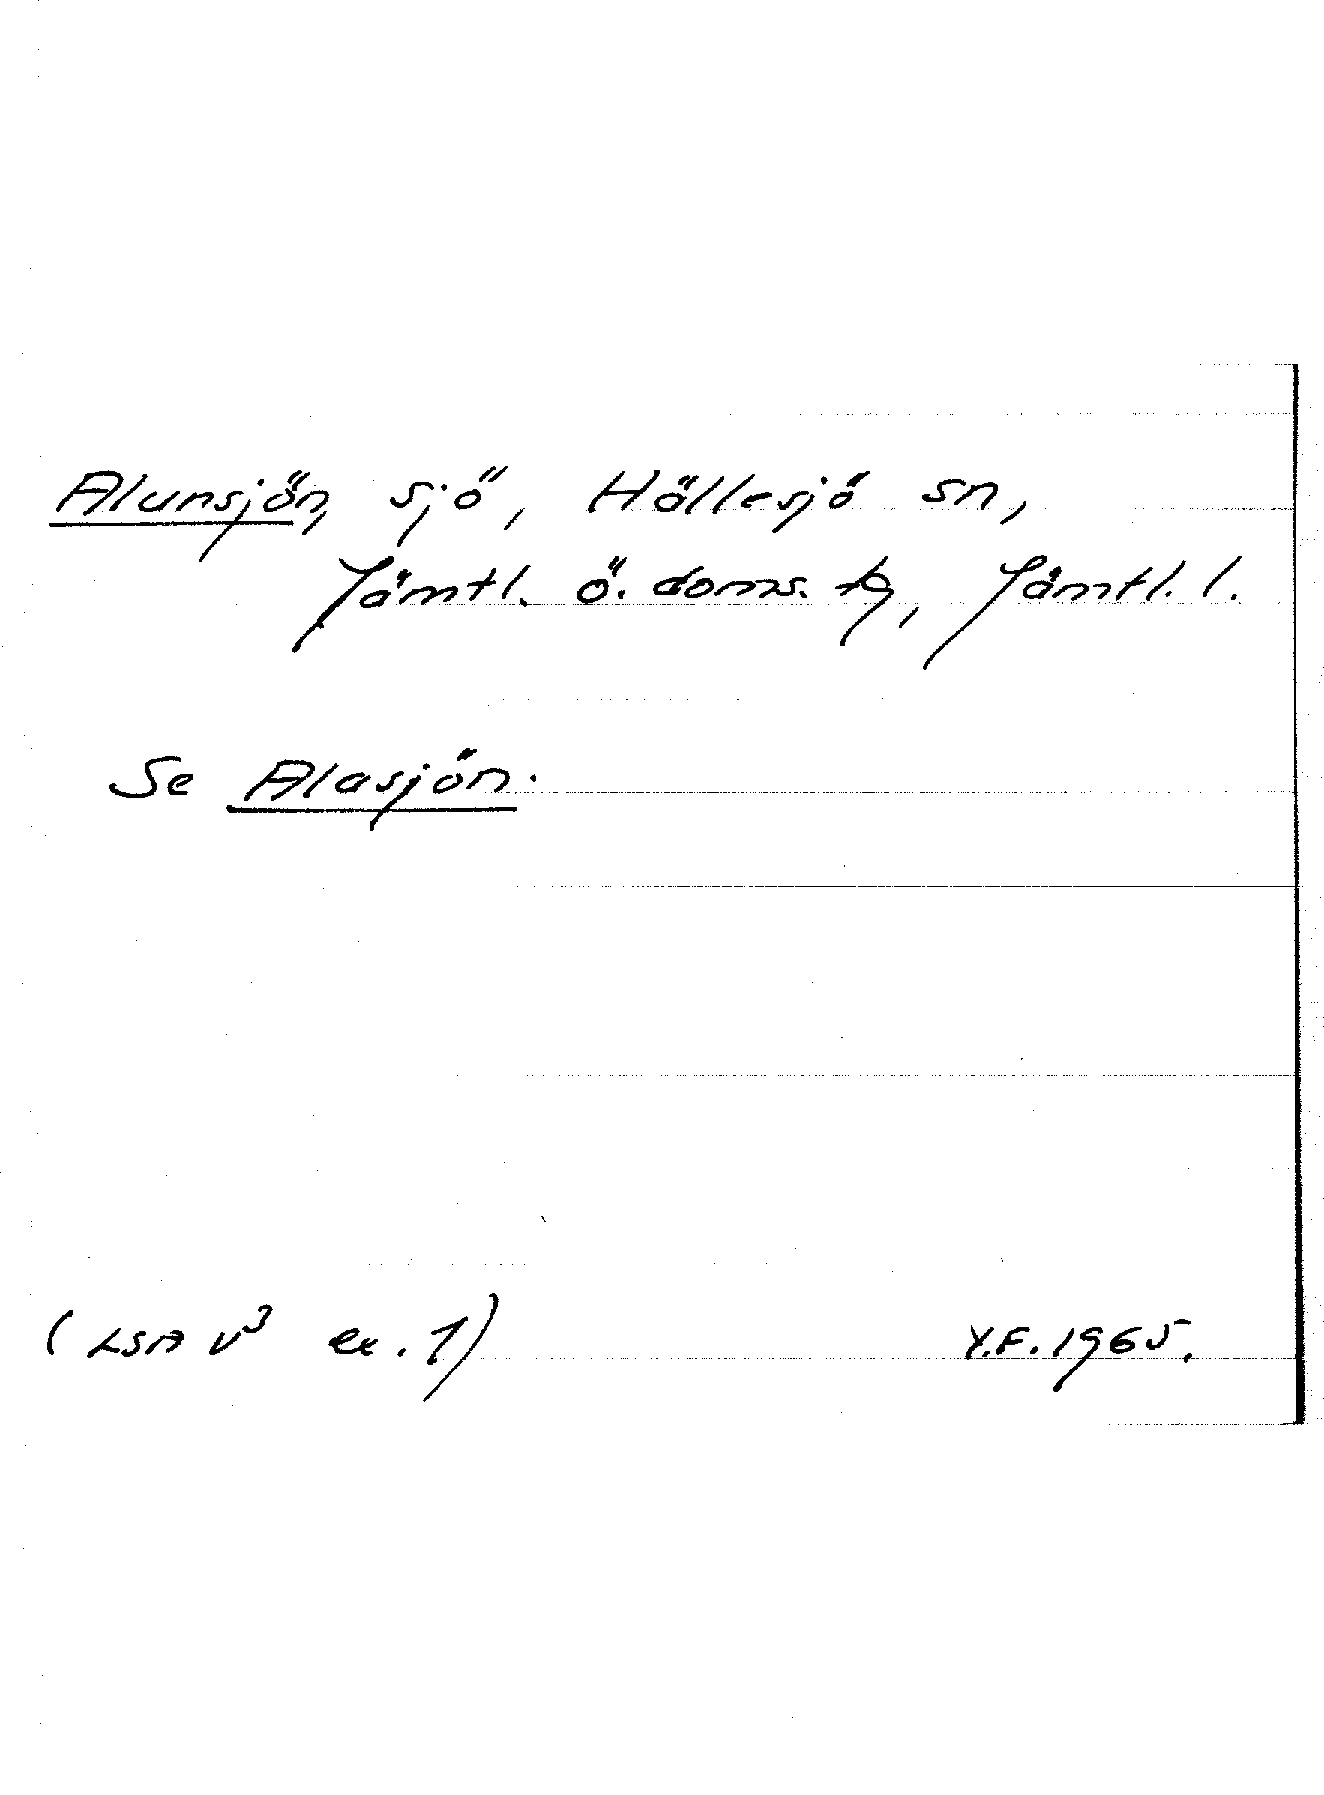 Alunsjön, sjö, Hällesjö sn,
Jämtl. ö. doms. tg, Jämtl. l.
Se Alasjön.
(LSA V³ ex. 1)
Y.F. 1965.